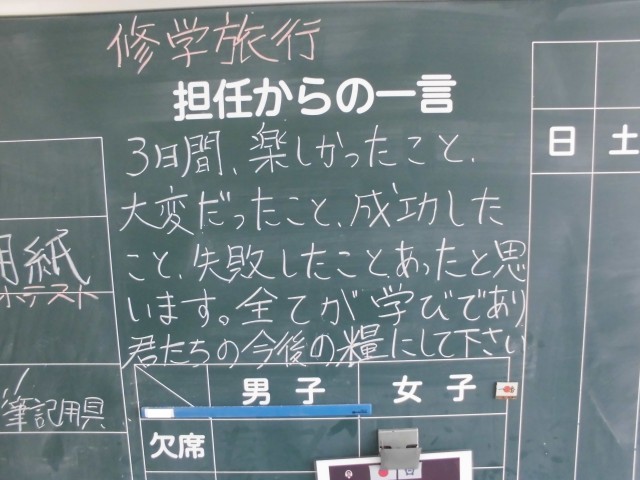 修学旅行
担任からの一言
3日間、楽しかったこと、
大変だったこと、成功した
こと、失敗したこと、あったと思
います。全てが学びであり
君たちの今後の糧にして下さい
日 土
用紙
テスト
筆記用具
男子 女子
欠席